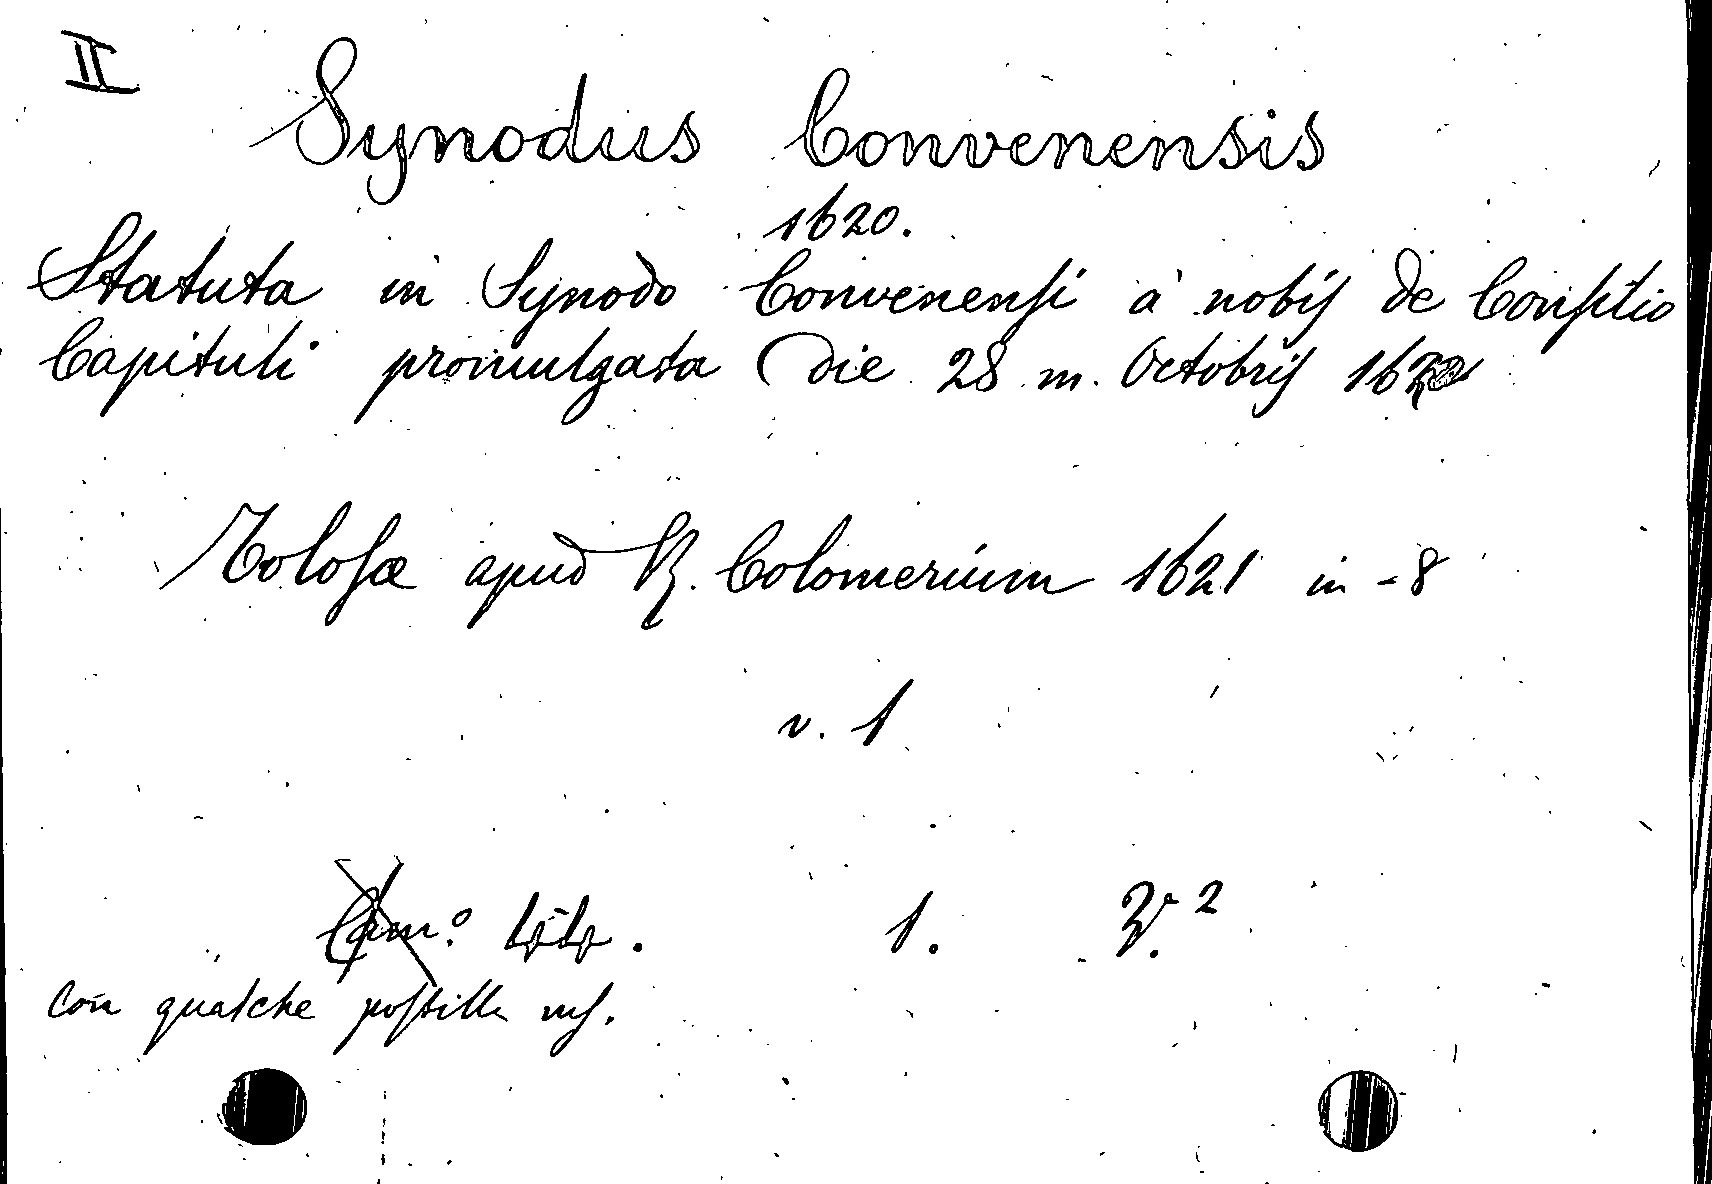 II
Synodus Convenensis
1620.
Statuta in Synodo Convenensi a nobis de Consilio
Capituli promulgata die 28 m. Octobris 1620
Tolosæ apud R. Colomerium 1621 in -8
v. 1
1. V. 2
con qualche postille ms.